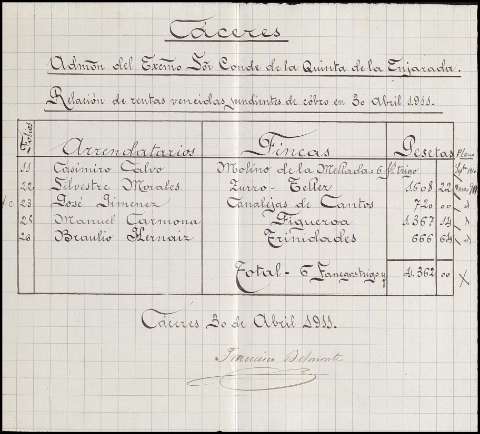 Cáceres
Admón del Excmo Sór Conde de la Quinta de la Enjarada.
Relación de rentas vencidas, pendientes de cobro en 30 Abril 1911.
Folios Arrendatarios Fincas Pesetas Plazo
11 Casimiro Calvo Molino de la Mellada 6 trigo
22 Silvestre Morales Zurro-Tellez 1.608 22
23 José Jimenez Canalejas de Cantos 720 00
25 Manuel Carmona Figueroa 1.367 14
26 Braulio Hernaiz Trinidades 666 64
Total - 6 Fanegas trigo y 4.362 00
Cáceres 30 de Abril 1911.